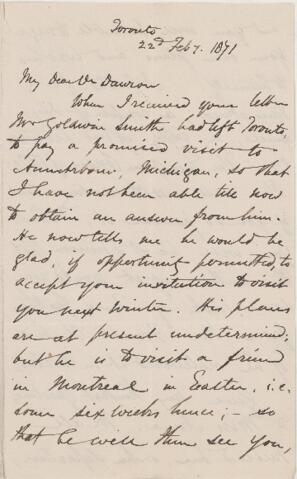 Toronto
22d Feby. 1871
My Dear Dr Dawson
When I received your letter
Mr Goldwin Smith had left Toronto,
to pay a promised visit to
Michigan, so that
I have not been able till now
to obtain an answer from him.
He now tells me he would be
glad, if opportunity permitted, to
accept your invitation to visit
you next winter. His plans
are at present undetermined;
but he is to visit a friend
in Montreal in Easter, i.e.
some six weeks hence; – so
that he will then see you,